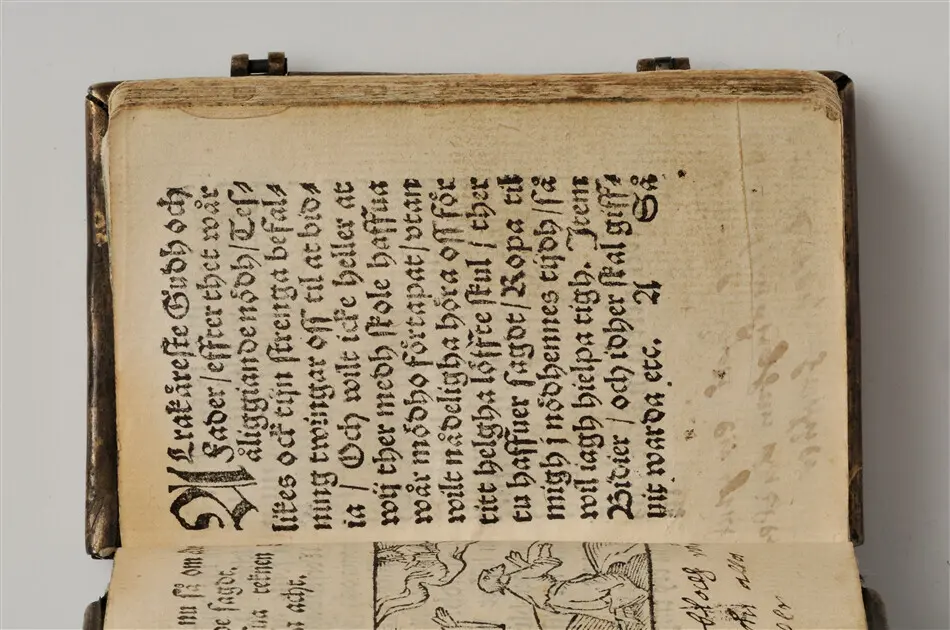 ALrakäreste Gudh och
Fader / effter thet wår
åliggiande nödh / Tes⸗
likes ock tijn strenga befal⸗
ning twingar oss til at bid⸗
ia / Och wilt icke heller at
wij ther medh skole haffua
wår mödho förtapat / vtan
wilt nådeligha höra oss för
titt helgha löffte skul / ther
tu haffuer sagdt / Ropa til
migh j nödhennes tijdh / så
wil iagh hielpa tigh. Item
Bidier / och idher skal giff⸗
uit warda / etc. A Så
nu så om
sagde.
acht.